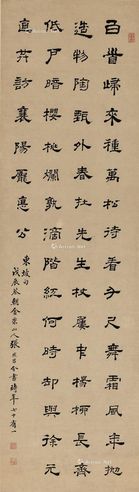 白首歸來種萬松待看千尺舞霜風年拋
造物陶甄外春在先生杖屨中楊柳長齊
低戶暗櫻桃爛熟滴階紅何時卻與徐元
直共訪襄陽龐德公
東坡句
戊辰 山人張 書時年七十有一